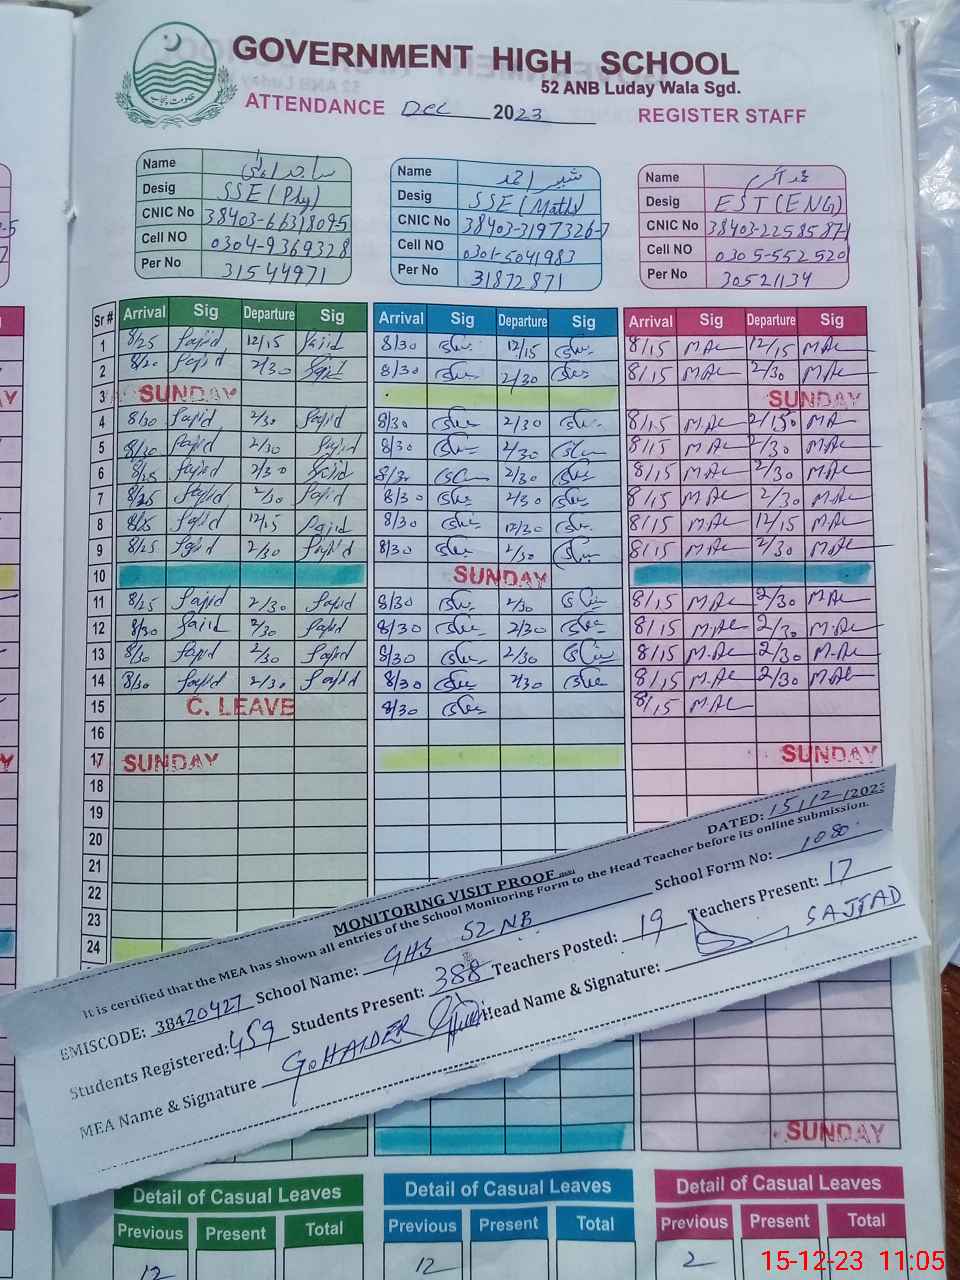 GOVERNMENT HIGH SCHOOL
52 ANB Luday Wala Sgd.
ATTENDANCE Dec 2023 REGISTER STAFF
حکومت پنجاب
Name
Desig SSE (Phy)
CNIC No
Cell NO 0304-9369328
Per No 31544971
Name شبیر احمد
Desig SSE (Maths)
CNIC No 38403-3197326-7
Cell NO 0301-5041983
Per No 31872871
Name
Desig EST (ENG)
CNIC No 38403-2258587-1
Cell NO 0305-552520
Per No 30521134
Sr # Arrival Sig Departure Sig Arrival Sig Departure Sig Arrival Sig Departure Sig
1 8/25 Sajid 12/15 Sajid 8/30 12/15 8/15 12/15
2 8/20 Sajid 2/30 Sajid 8/30 2/30 8/15 2/30
3 SUNDAY SUNDAY
4 8/30 Sajid 2/30 Sajid 8/30 2/30 8/15
5 8/30 Sajid 2/30 Sajid 8/30 2/30 8/15 2/30
6 8/25 Sajid 2/30 Sajid 8/30 2/30 8/15 2/30
7 8/25 Sajid 2/30 Sajid 8/30 2/30 8/15 2/30
8 8/25 Sajid 12/15 Sajid 8/30 12/30 8/15 12/15
9 8/25 Sajid 2/30 Sajid 8/30 2/30 8/15 2/30
10 SUNDAY
11 8/25 Sajid 2/30 Sajid 8/30 2/30 8/15 2/30
12 8/30 Sajid 2/30 Sajid 8/30 2/30 8/15 2/30
13 8/30 Sajid 2/30 Sajid 8/30 2/30 8/15 2/30
14 8/30 Sajid 2/30 Sajid 8/30 2/30 8/15 2/30
15 C. LEAVE 8/30 8/15
16
17 SUNDAY SUNDAY
18
19
20
21
22
23
24
DATED: 15/12/2023
MONITORING VISIT PROOF
It is certified that the MEA has shown all entries of the School Monitoring Form to the Head Teacher before its online submission.
EMISCODE: 38420427 School Name: GHS 52 NB School Form No: 1080
Students Registered: 459 Students Present: 388 Teachers Posted: 19 Teachers Present: 17
MEA Name & Signature G. HAIDER Head Name & Signature: SAJJAD
SUNDAY
Detail of Casual Leaves Detail of Casual Leaves Detail of Casual Leaves
Previous Present Total Previous Present Total Previous Present Total
12 12 2
15-12-23 11:05